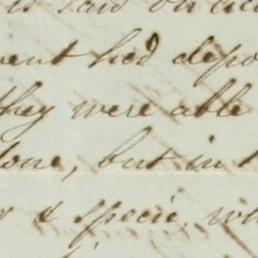 is said on
ent had depo
they were able
done, but in
& specie, wh